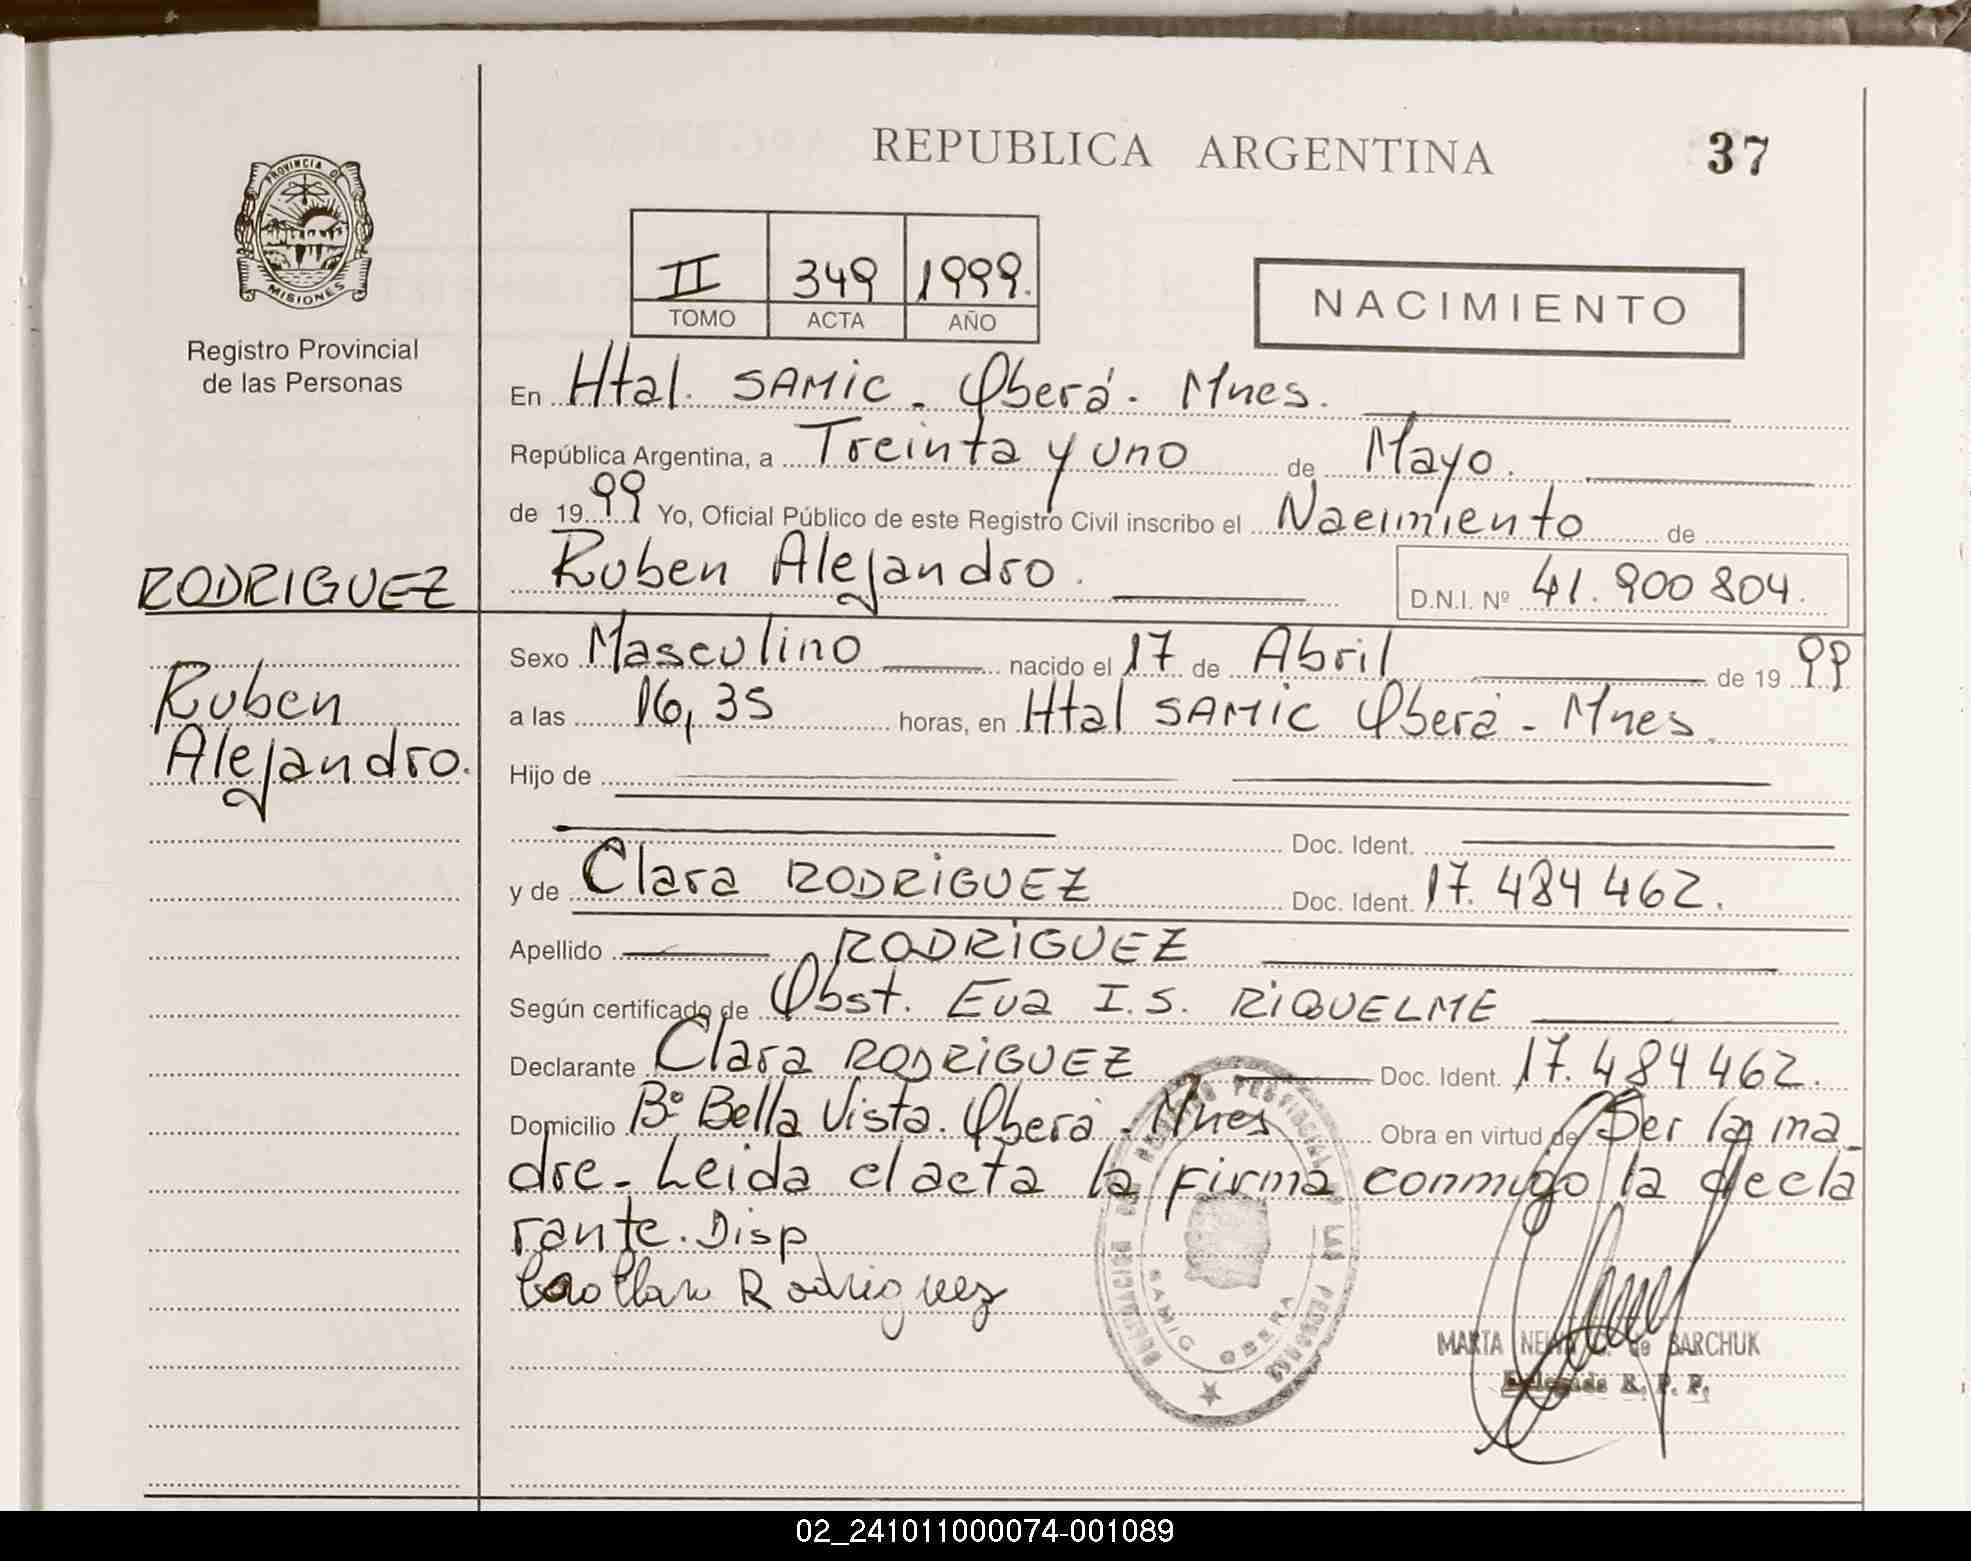 REPUBLICA ARGENTINA
37
PROVINCIA DE
MISIONES
Registro Provincial
de las Personas
II 349 1999.
TOMO ACTA AÑO
NACIMIENTO
En Htal. SAMIC - Oberá - Mnes.
República Argentina, a Treinta y uno de Mayo.
de 1999 Yo, Oficial Público de este Registro Civil inscribo el Nacimiento de
Ruben Alejandro. D.N.I. Nº 41.900804.
RODRIGUEZ
Ruben
Alejandro.
Sexo Masculino nacido el 17 de Abril de 1999
a las 16,35 horas, en Htal SAMIC Oberá - Mnes.
Hijo de
Doc. Ident.
y de Clara RODRIGUEZ Doc. Ident. 17.484462.
Apellido RODRIGUEZ
Según certificado de Obst. Eva I.S. RIQUELME
Declarante Clara RODRIGUEZ Doc. Ident. 17.484462.
Domicilio Bº Bella Vista. Oberá - Mnes Obra en virtud de Ser la ma-
dre - Leida el acta la firma conmigo la decla
rante. Disp
Rodriguez
DELEGACION DEL REGISTRO PROVINCIAL DE LAS PERSONAS
SAMIC OBERA
MARTA de BARCHUK
Delegada R. P. P.
02_241011000074-001089